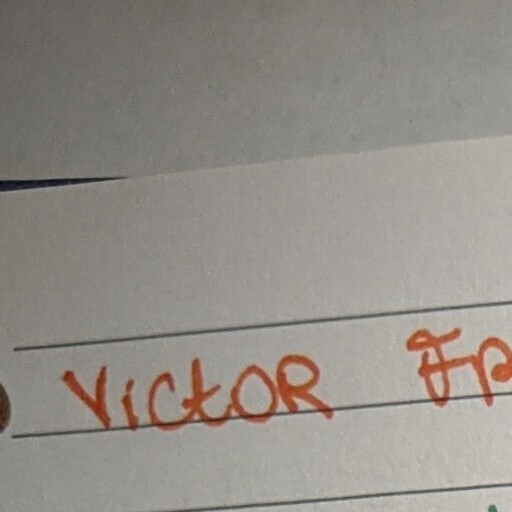 VictOR Fr